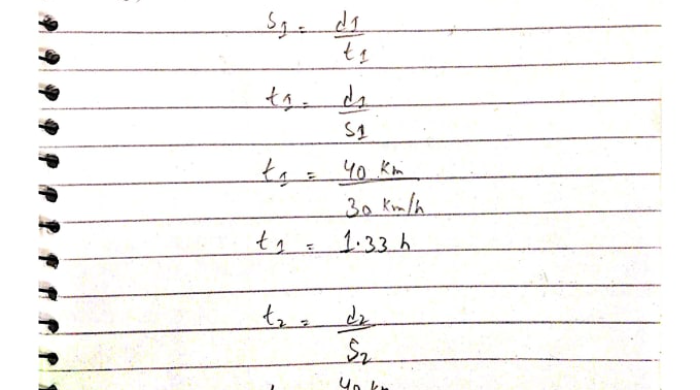 S1 = d1/t1
t1 = d1/S1
t1 = 40 km/30 km/h
t1 = 1.33 h
t2 = d2/S2
40 km